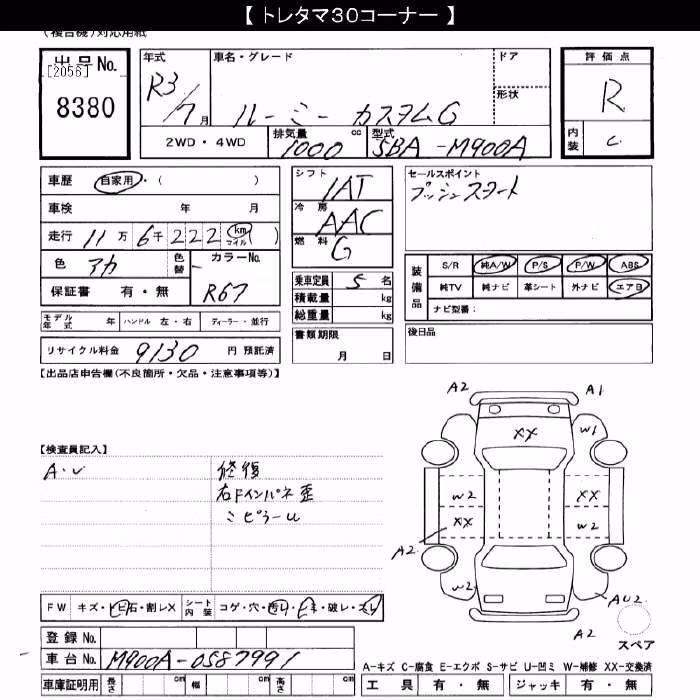 【 トレタマ30コーナー 】
(複合機)対応用紙
出品No.
[2056]
8380
年式
R3/7月
車名・グレード
ルーミー カスタムG
ドア
形状
2WD・4WD
排気量 1000 cc
型式 5BA-M900A
評価点
R
内装 C
車歴 自家用・( )
車検 年 月
走行 11万6千222 km マイル ( )
色 アカ
色替
カラーNo.
R67
保証書 有・無
シフト IAT
冷房 AAC
燃料 G
乗車定員 5 名
積載量 kg
総重量 kg
セールスポイント
プッシュスタート
装備品
S/R 純A/W P/S P/W ABS
純TV 純ナビ 革シート 外ナビ エアB
ナビ型番:
モデル年式 年 ハンドル 左・右 ディーラー・並行
リサイクル料金 9130 円 預託済
書類期限
月 日
後日品
【出品店申告欄(不良箇所・欠品・注意事項等)】
【検査員記入】
A・U
修復
右Fインパネ歪
ミピラーU
A2 A1
XX W1
W2 XX
XX W2
A2
W2 AU2
A2
スペア
FW キズ・ヒビ石・割レX
シート内装 コゲ・穴・汚レ・キ・破レ・スレ
登録No.
車台No. M900A-0587991
車庫証明用 長さ cm 幅 cm 高さ cm
A-キズ C-腐食 E-エクボ S-サビ U-凹ミ W-補修 XX-交換済
工具 有・無 ジャッキ 有・無